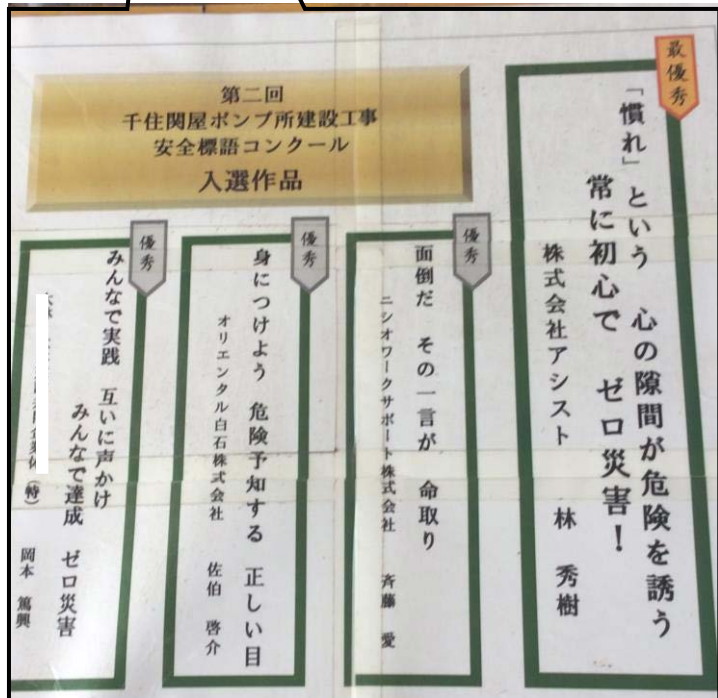 第二回
千住関屋ポンプ所建設工事
安全標語コンクール
入選作品
最優秀
「慣れ」という 心の隙間が危険を誘う
常に初心で ゼロ災害！
株式会社アシスト 林 秀樹
優秀
面倒だ その一言が 命取り
ニシオワークサポート株式会社 斉藤 愛
優秀
身につけよう 危険予知する 正しい目
オリエンタル白石株式会社 佐伯 啓介
優秀
みんなで実践 互いに声かけ
みんなで達成 ゼロ災害
（特） 岡本 篤興